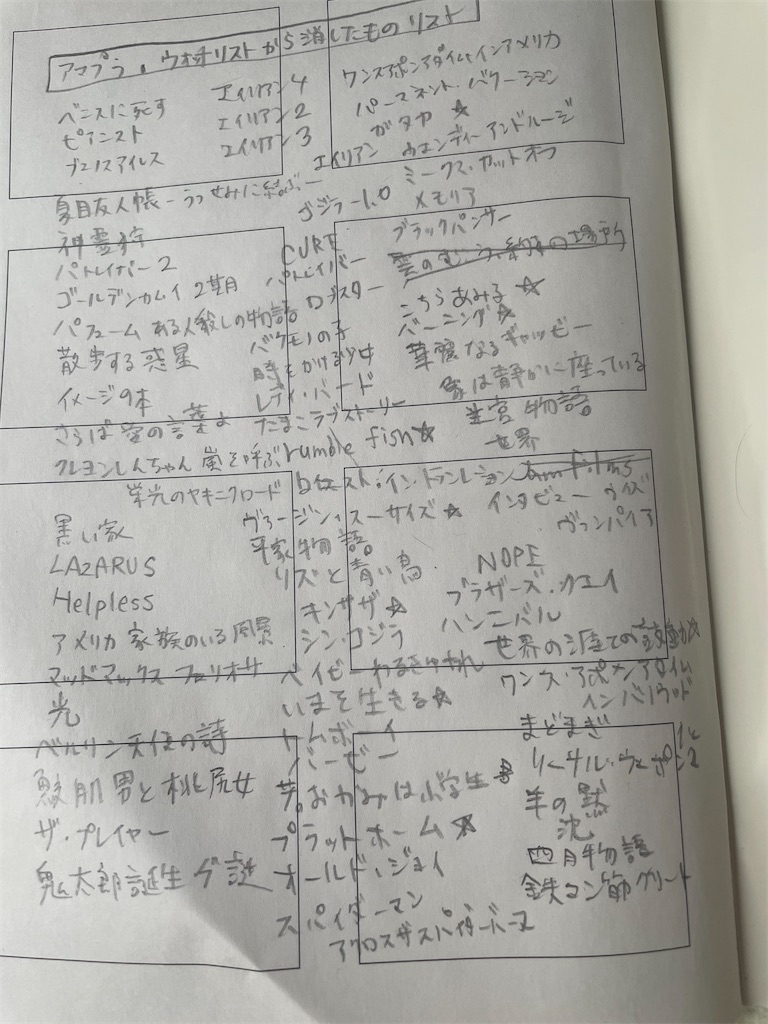 アマプラ。ウォッチリストから消したものリスト
ベニスに死す
ピアニスト
ブエノスアイレス
夏目友人帳-うつせみに結ぶ-
神霊狩
パトレイバー2
ゴールデンカムイ 2期
パフューム ある人殺しの物語
散歩する惑星
イメージの本
さらば愛の言葉よ
クレヨンしんちゃん 嵐を呼ぶ
栄光のヤキニクロード
黒い家
LAZARUS
Helpless
アメリカ 家族のいる風景
マッドマックス フュリオサ
光
ベルリン天使の詩
鮫肌男と桃尻女
ザ・プレイヤー
鬼太郎誕生 ゲ謎
エイリアン4
エイリアン2
エイリアン3
エイリアン
ゴジラ-1.0
CURE
パトレイバー
ロブスター
バケモノの子
時をかける少女
レディ・バード
たまこラブストーリー
rumble fish☆
ロスト・イン・トランスレーション
ヴァージン・スーサイズ ☆
平家物語
リズと青い鳥
キンザザ☆
シン・ゴジラ
ベイビーわるきゅーれ
いまを生きる☆
サムボーイ
バービー
若おかみは小学生
プラットホーム☆
オールド・ジョイ
スパイダーマン
アクロスザスパイダーバース
ワンスアポンアタイムインアメリカ
パーマネント・バケーション
ガタカ ☆
ウエンディーアンドルーシー
ミークス・カットオフ
メモリア
ブラックパンサー
雲のむこう、約束の場所
こちらあみ子 ☆
バーニング☆
華麗なるギャッビー
象は静かに座っている
迷宮物語
世界
インタビュー ウィズ
ヴァンパイア
NOPE
ブラザーズ・クエイ
ハンニバル
世界の涯ての鼓動☆
ワンス・アポン・アタイム
インハリウッド
まどまぎ
リーサル・ウェポン 1と2
羊の沈黙
四月物語
鉄コン筋クリート